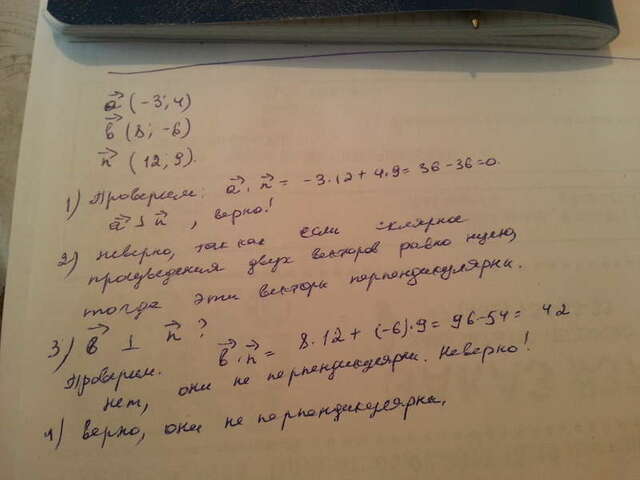 a⃗ (-3; 4)
в⃗ (8; -6)
n⃗ (12; 9).
1) Проверим: a⃗ · n⃗ = -3·12 + 4·9 = 36 - 36 = 0.
a⃗ ⊥ n⃗, верно!
2) неверно, так как если склярное
произведения двух векторов равно нулю,
тогда эти векторы перпендикулярны.
3) в⃗ ⊥ n⃗ ?
Проверим. в⃗·n⃗ = 8·12 + (-6)·9 = 96-54 = 42
нет, они не перпендикулярны. Неверно!
4) верно, они не перпендикулярны.